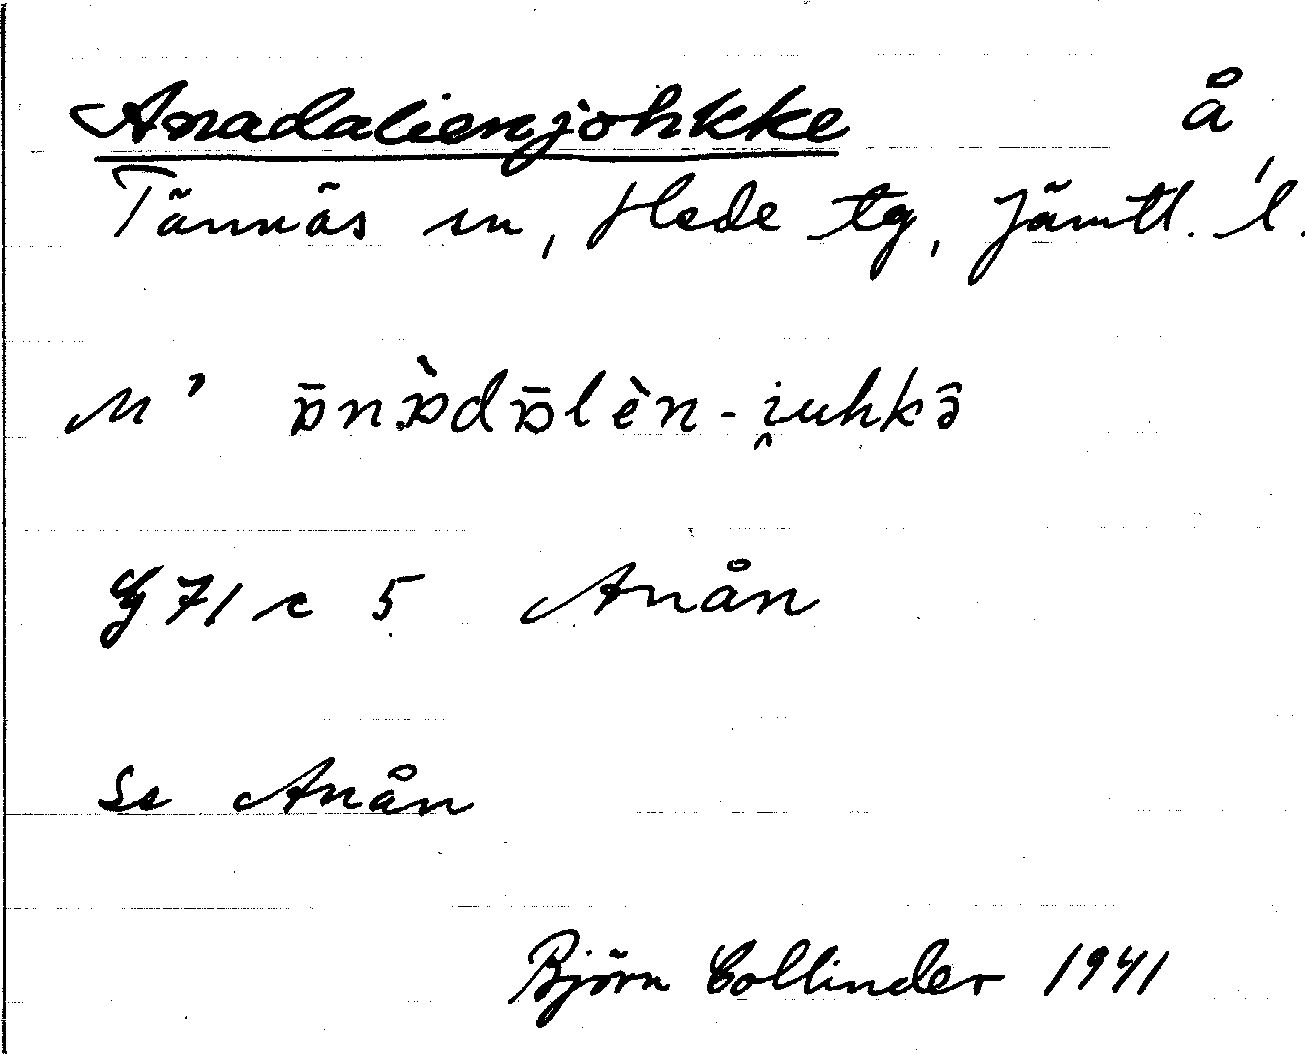 Anadalienjohkke å
Tännäs sn, Hede tg, Jämtl. l.
M' ɒ̄n.ɒ̀dɒ̄lèn-i̯uhkə̂
G 71 c 5 Anån
Se Anån
Björn Collinder 1941